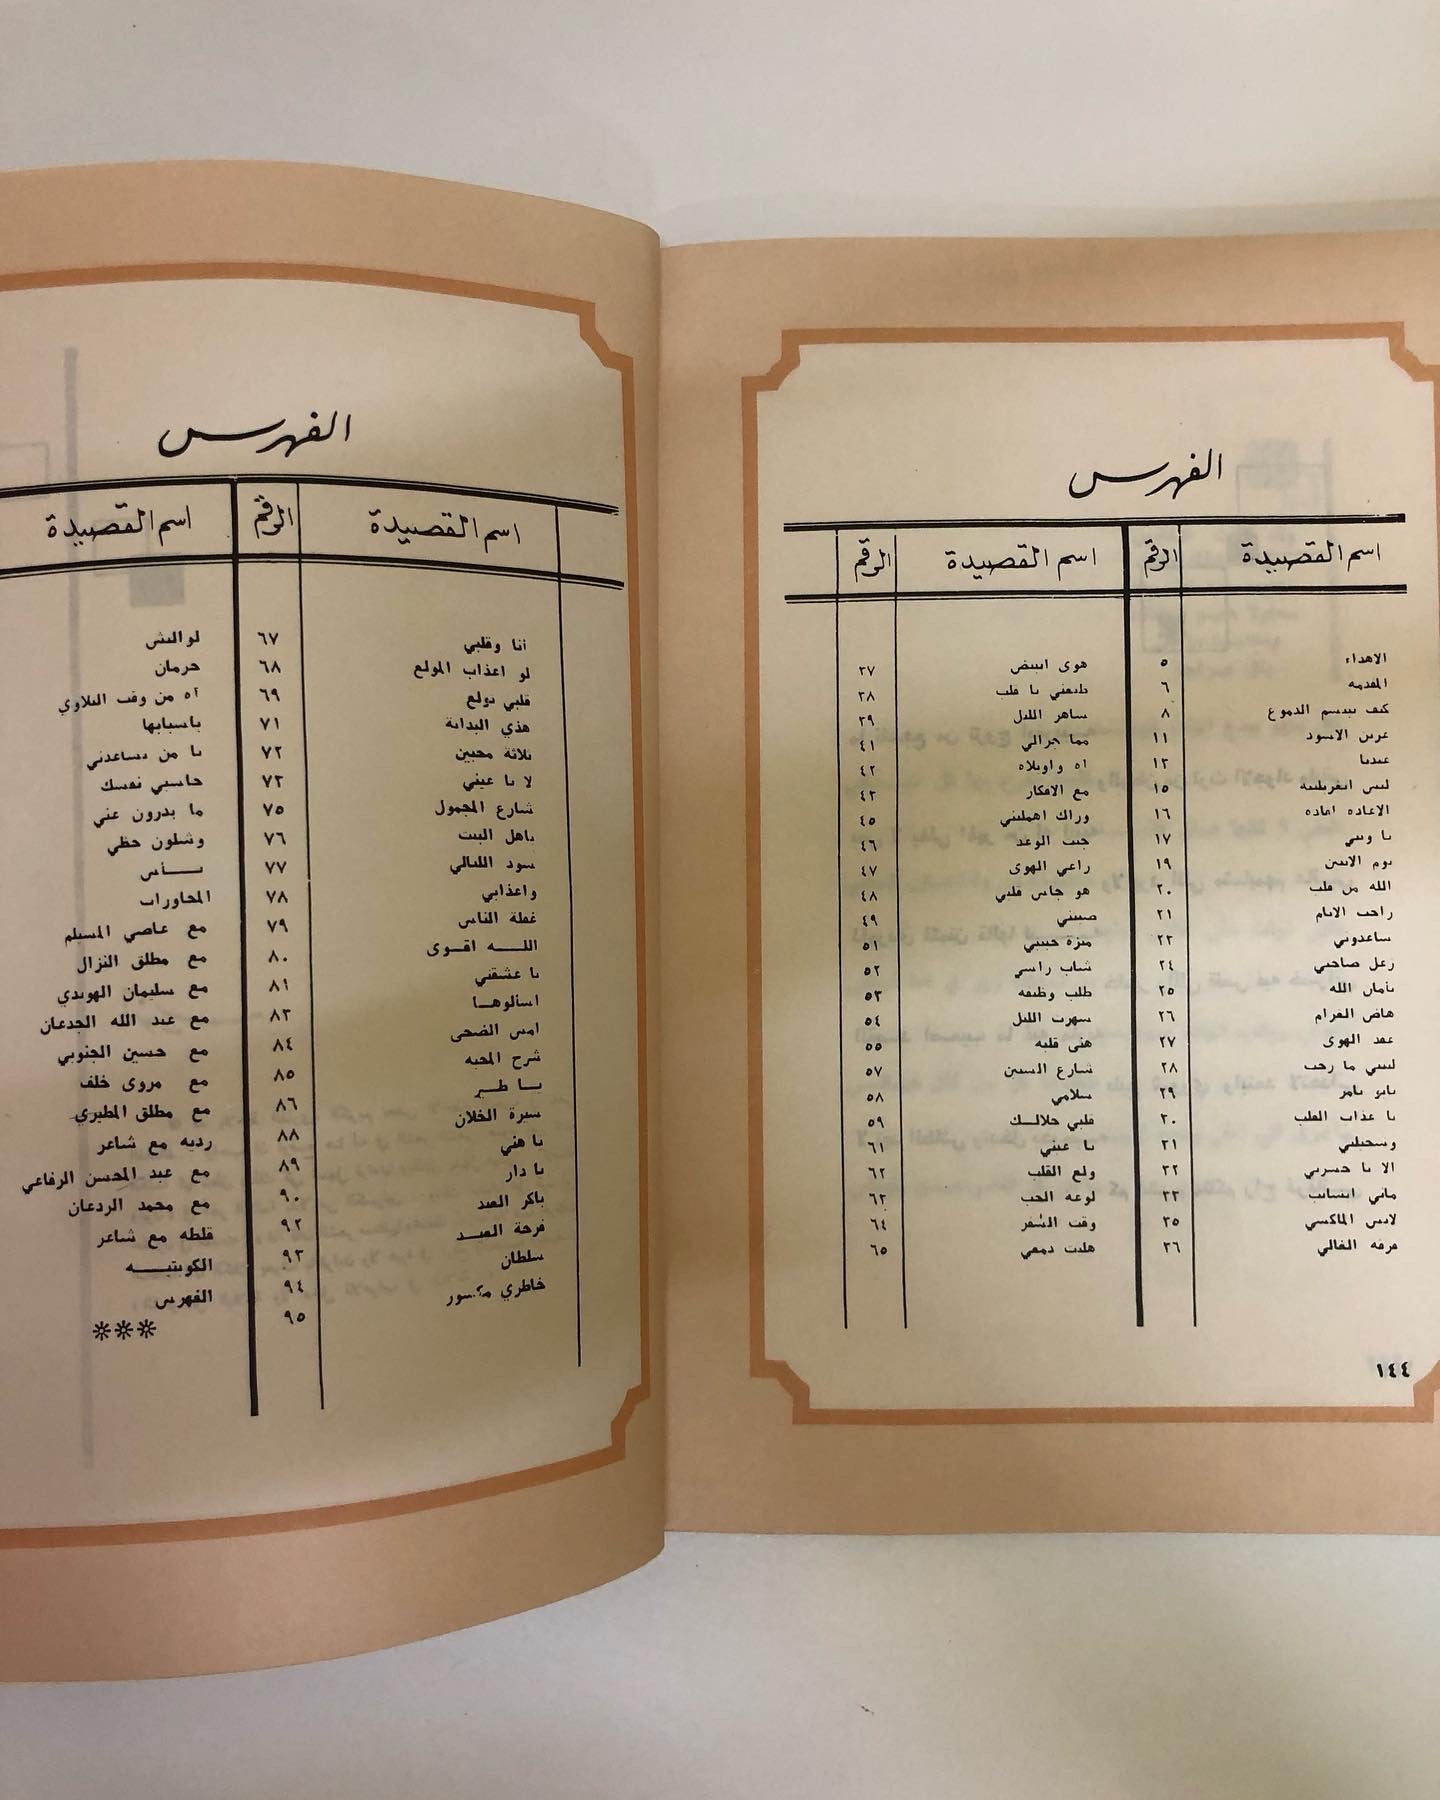 الفهرس
اسم القصيدة الرقم اسم القصيدة الرقم
الاهداء ٥ هوى ابيض ٣٧
المقدمه ٦ طيعني يا قلب ٣٨
كيف تبتسم الدموع ٨ ساهر الليل ٣٩
عرين الاسود ١١ مما جرالي ٤١
عيديا ١٣ اه واويلاه ٤٢
ليس انقرطيبه ١٥ مع الافكار ٤٣
الاعاده افاده ١٦ وراك اهملتني ٤٥
يا ونتي ١٧ جيت الوعد ٤٦
يوم الاثنين ١٩ راعي الهوى ٤٧
الله من قلب ٢٠ هو جاس قلبي ٤٨
راحت الايام ٢١ صبيتي ٤٩
ساعدوني ٢٢ ميزة حبيبي ٥١
زعل صاحبي ٢٤ شاب راسي ٥٢
بأمان الله ٢٥ طلب وظيفه ٥٣
هاض الغرام ٢٦ سهرت الليل ٥٤
عقد الهوى ٢٧ هنى قلبه ٥٥
ليتني ما رحت ٢٨ شارع السيف ٥٧
يابو ثامر ٢٩ سلامي ٥٨
يا عذاب القلب ٣٠ قلبي حلالك ٥٩
وسجيلني ٣١ يا عيني ٦١
الا يا حسرتي ٣٢ ولع القلب ٦٢
ماني انساب ٣٣ لوعة الحب ٦٣
لابس الماكسي ٣٥ وقت الشفر ٦٤
فرقه الغالي ٣٦ هلت دمعي ٦٥
١٤٤
الفهرس
اسم القصيدة الرقم اسم القصيدة
أنا وقلبي ٦٧ لو البش
لو اعذاب المولع ٦٨ حرمان
قلبي تولع ٦٩ اه من وقت البلاوي
هذي البداية ٧١ ياسبابها
ثلاثة محبين ٧٢ يا من يساعدني
لا يا عيني ٧٣ حاسبي نفسك
شارع المجمول ٧٥ ما يدرون عني
ياهل البيت ٧٦ وشلون حظي
سود الليالي ٧٧ يأس
واعذابي ٧٨ المحاورات
غطة الناس ٧٩ مع عاصي المسيلم
الله اقوى ٨٠ مع مطلق النزال
يا عشقتي ٨١ مع سليمان الهويدي
اسألوها ٨٣ مع عبد الله الجدعان
امس الضحى ٨٤ مع حسين الجنوبي
شرح المحبه ٨٥ مع مروي خلف
يا طير ٨٦ مع مطلق المطيري
سيرة الخلان ٨٨ رديه مع شاعر
يا هني ٨٩ مع عبد المحسن الرفاعي
يا دار ٩٠ مع محمد الردعان
باكر العيد ٩٢ قلطه مع شاعر
فرحة العيد ٩٣ الكويتيه
سلطان ٩٤ الفهرس
خاطري مكسور ٩٥ ***